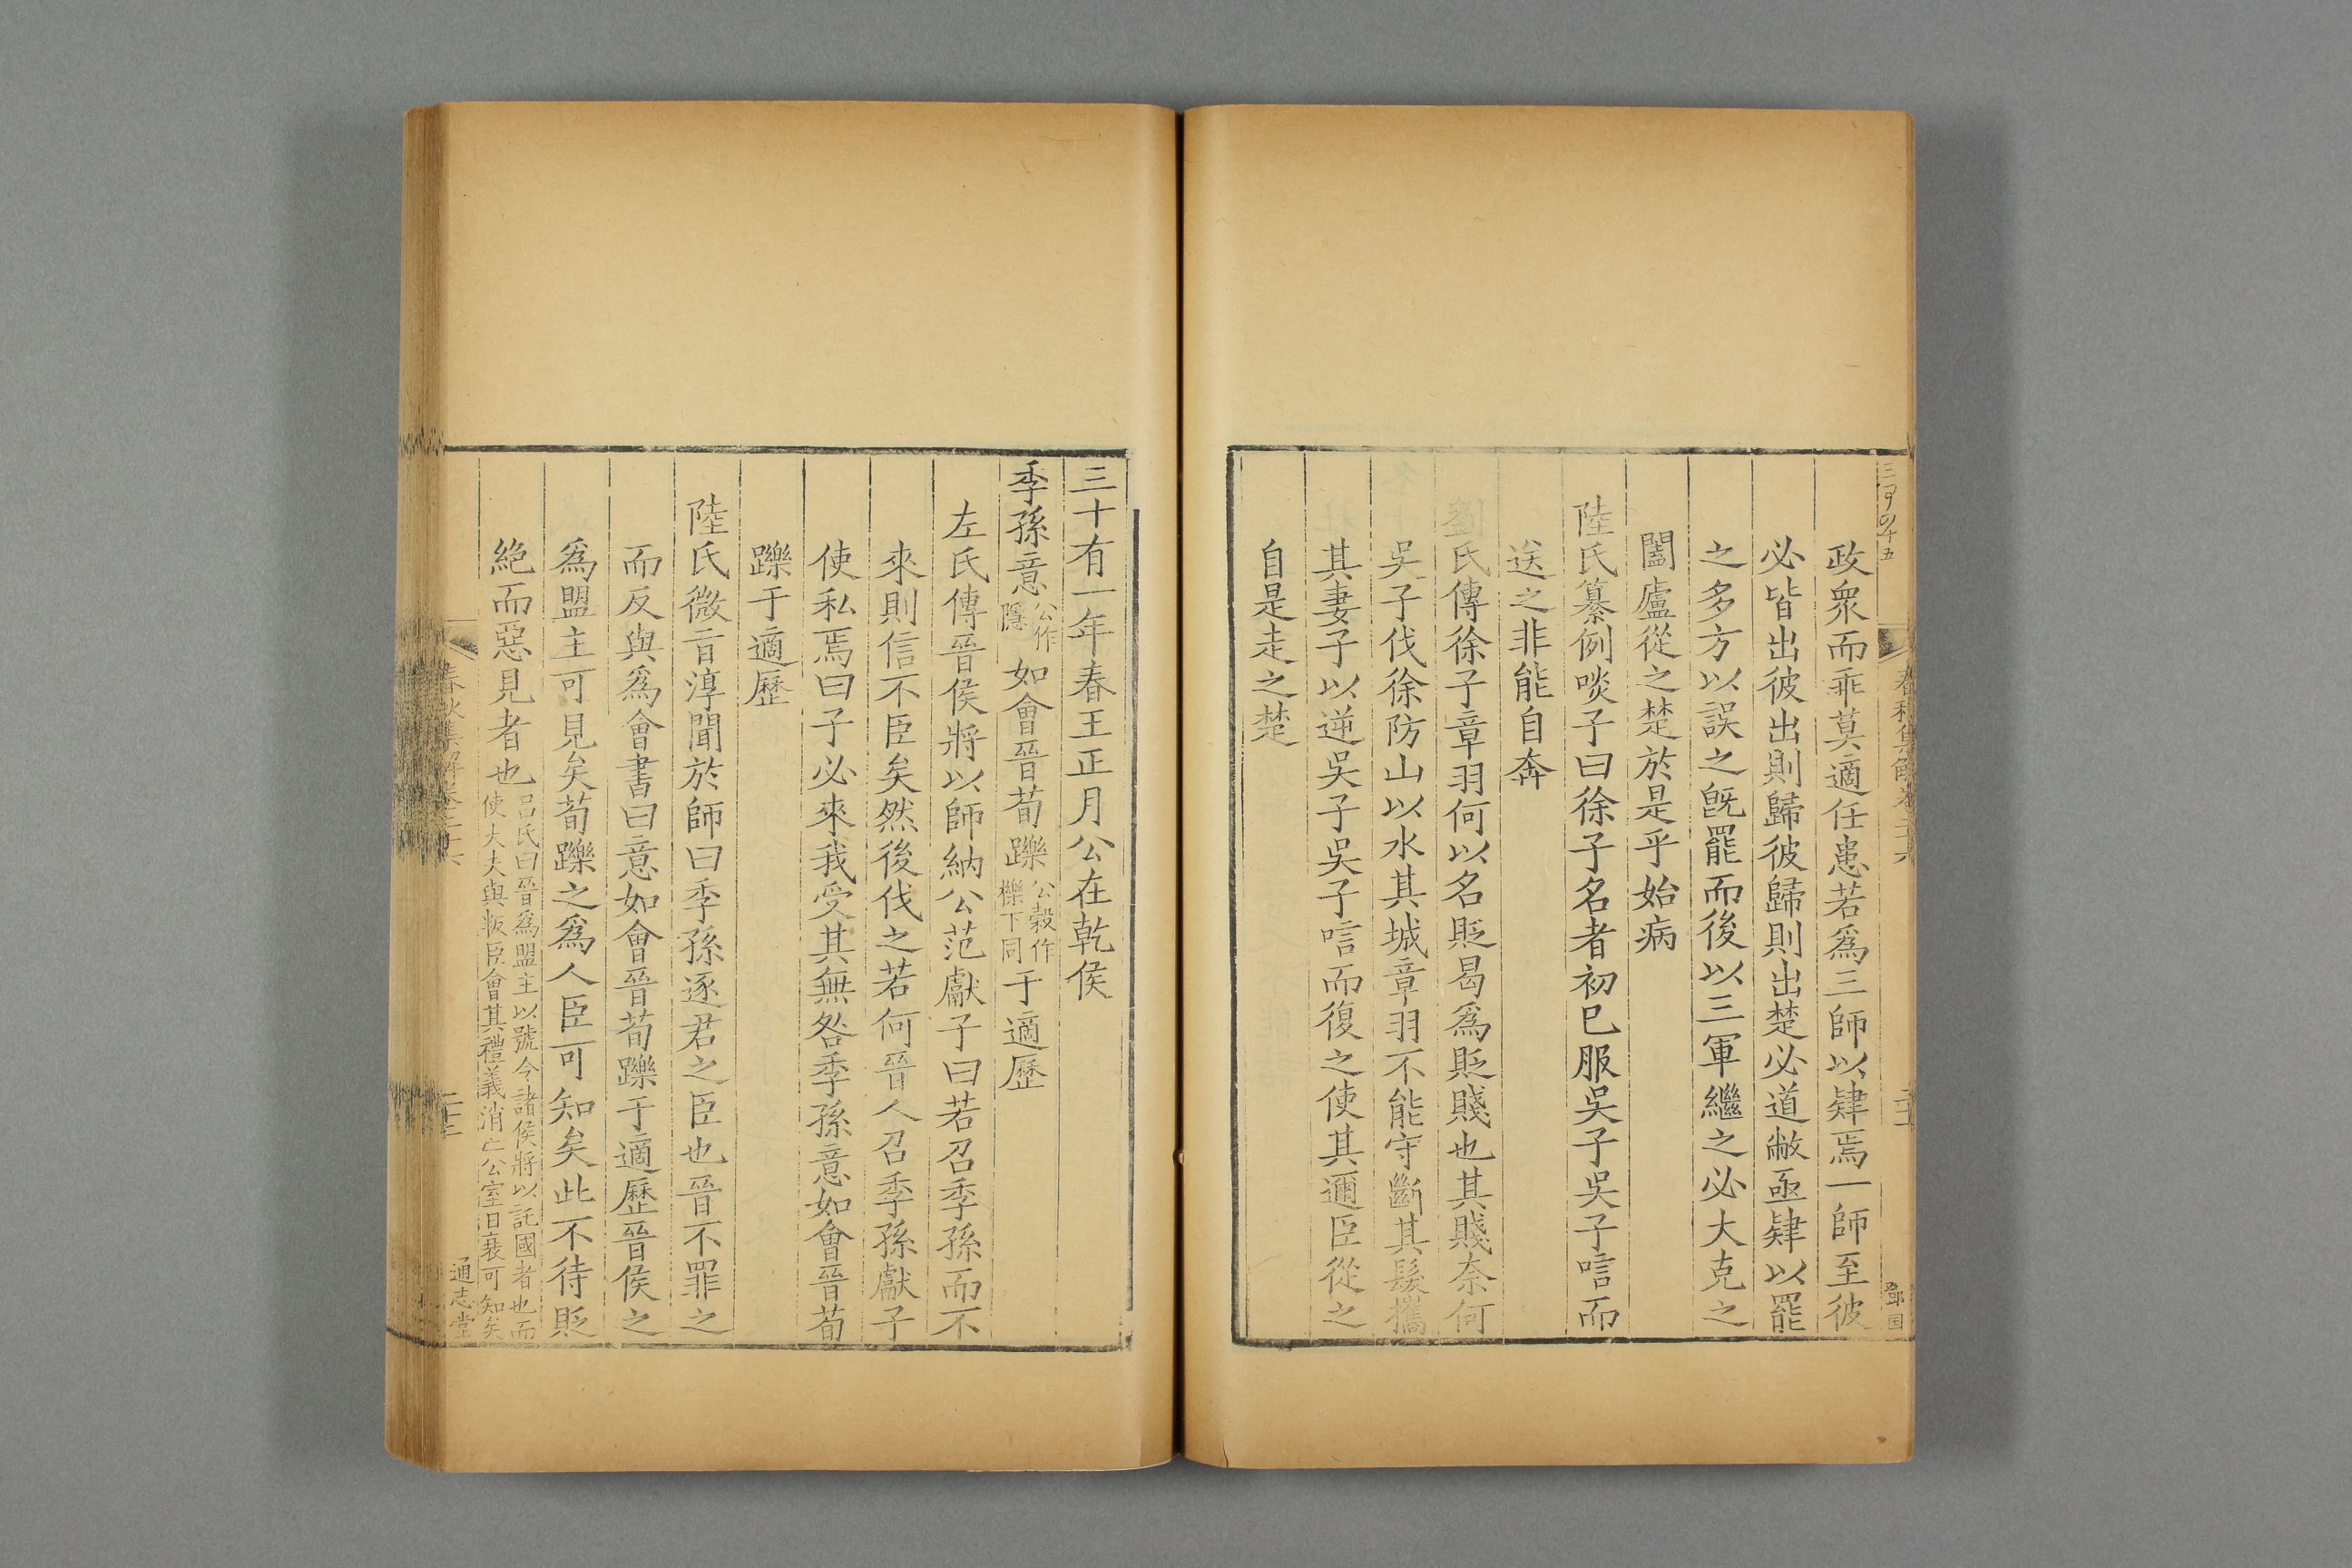 春秋集解卷二十六
政衆而乖莫適任患若爲三師以肄焉一師至彼
必皆出彼出則歸彼歸則出楚必道敝亟肄以罷
之多方以誤之旣罷而後以三軍繼之必大克之
闔廬從之楚於是乎始病
陸氏纂例啖子曰徐子名者初已服吳子吳子唁而
送之非能自奔
劉氏傳徐子章羽何以名貶曷爲貶賤也其賤奈何
吳子伐徐防山以水其城章羽不能守斷其髮攜
其妻子以逆吳子吳子唁而復之使其邇臣從之
自是走之楚
三十有一年春王正月公在乾侯
季孫意公作隱如會晉荀躒公穀作櫟下同于適歷
左氏傳晉侯將以師納公范獻子曰若召季孫而不
來則信不臣矣然後伐之若何晉人召季孫獻子
使私焉曰子必來我受其無咎季孫意如會晉荀
躒于適歷
陸氏微旨淳聞於師曰季孫逐君之臣也晉不罪之
而反與爲會書曰意如會晉荀躒于適歷晉侯之
爲盟主可見矣荀躒之爲人臣可知矣此不待貶
絕而惡見者也呂氏曰晉爲盟主以號令諸侯將以託國者也而使大夫與叛臣會其禮義消亡公室日衰可知矣
春秋集解卷二十六
通志堂